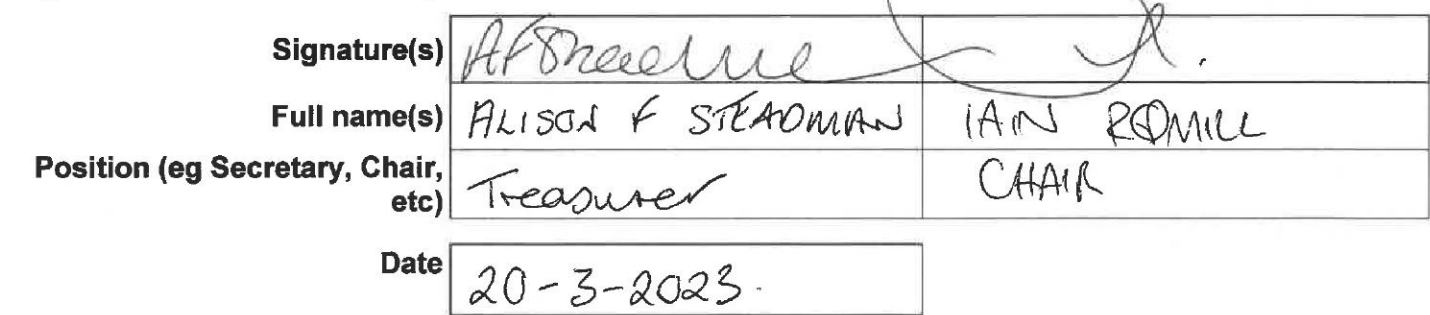 Signature(s)
Full name(s) ALISON F STEADMAN IAIN
Position (eg Secretary, Chair,
etc) Treasurer CHAIR
Date 20-3-2023.